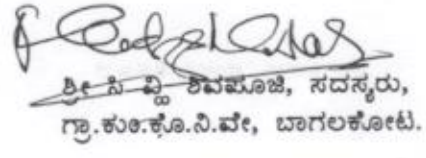 ಶ್ರೀ ಸಿ ವ್ಹಿ ಶಿವಪೂಜಿ, ಸದಸ್ಯರು,
ಗ್ರಾ.ಕುಂ.ಕೊ.ನಿ.ವೇ, ಬಾಗಲಕೋಟ.